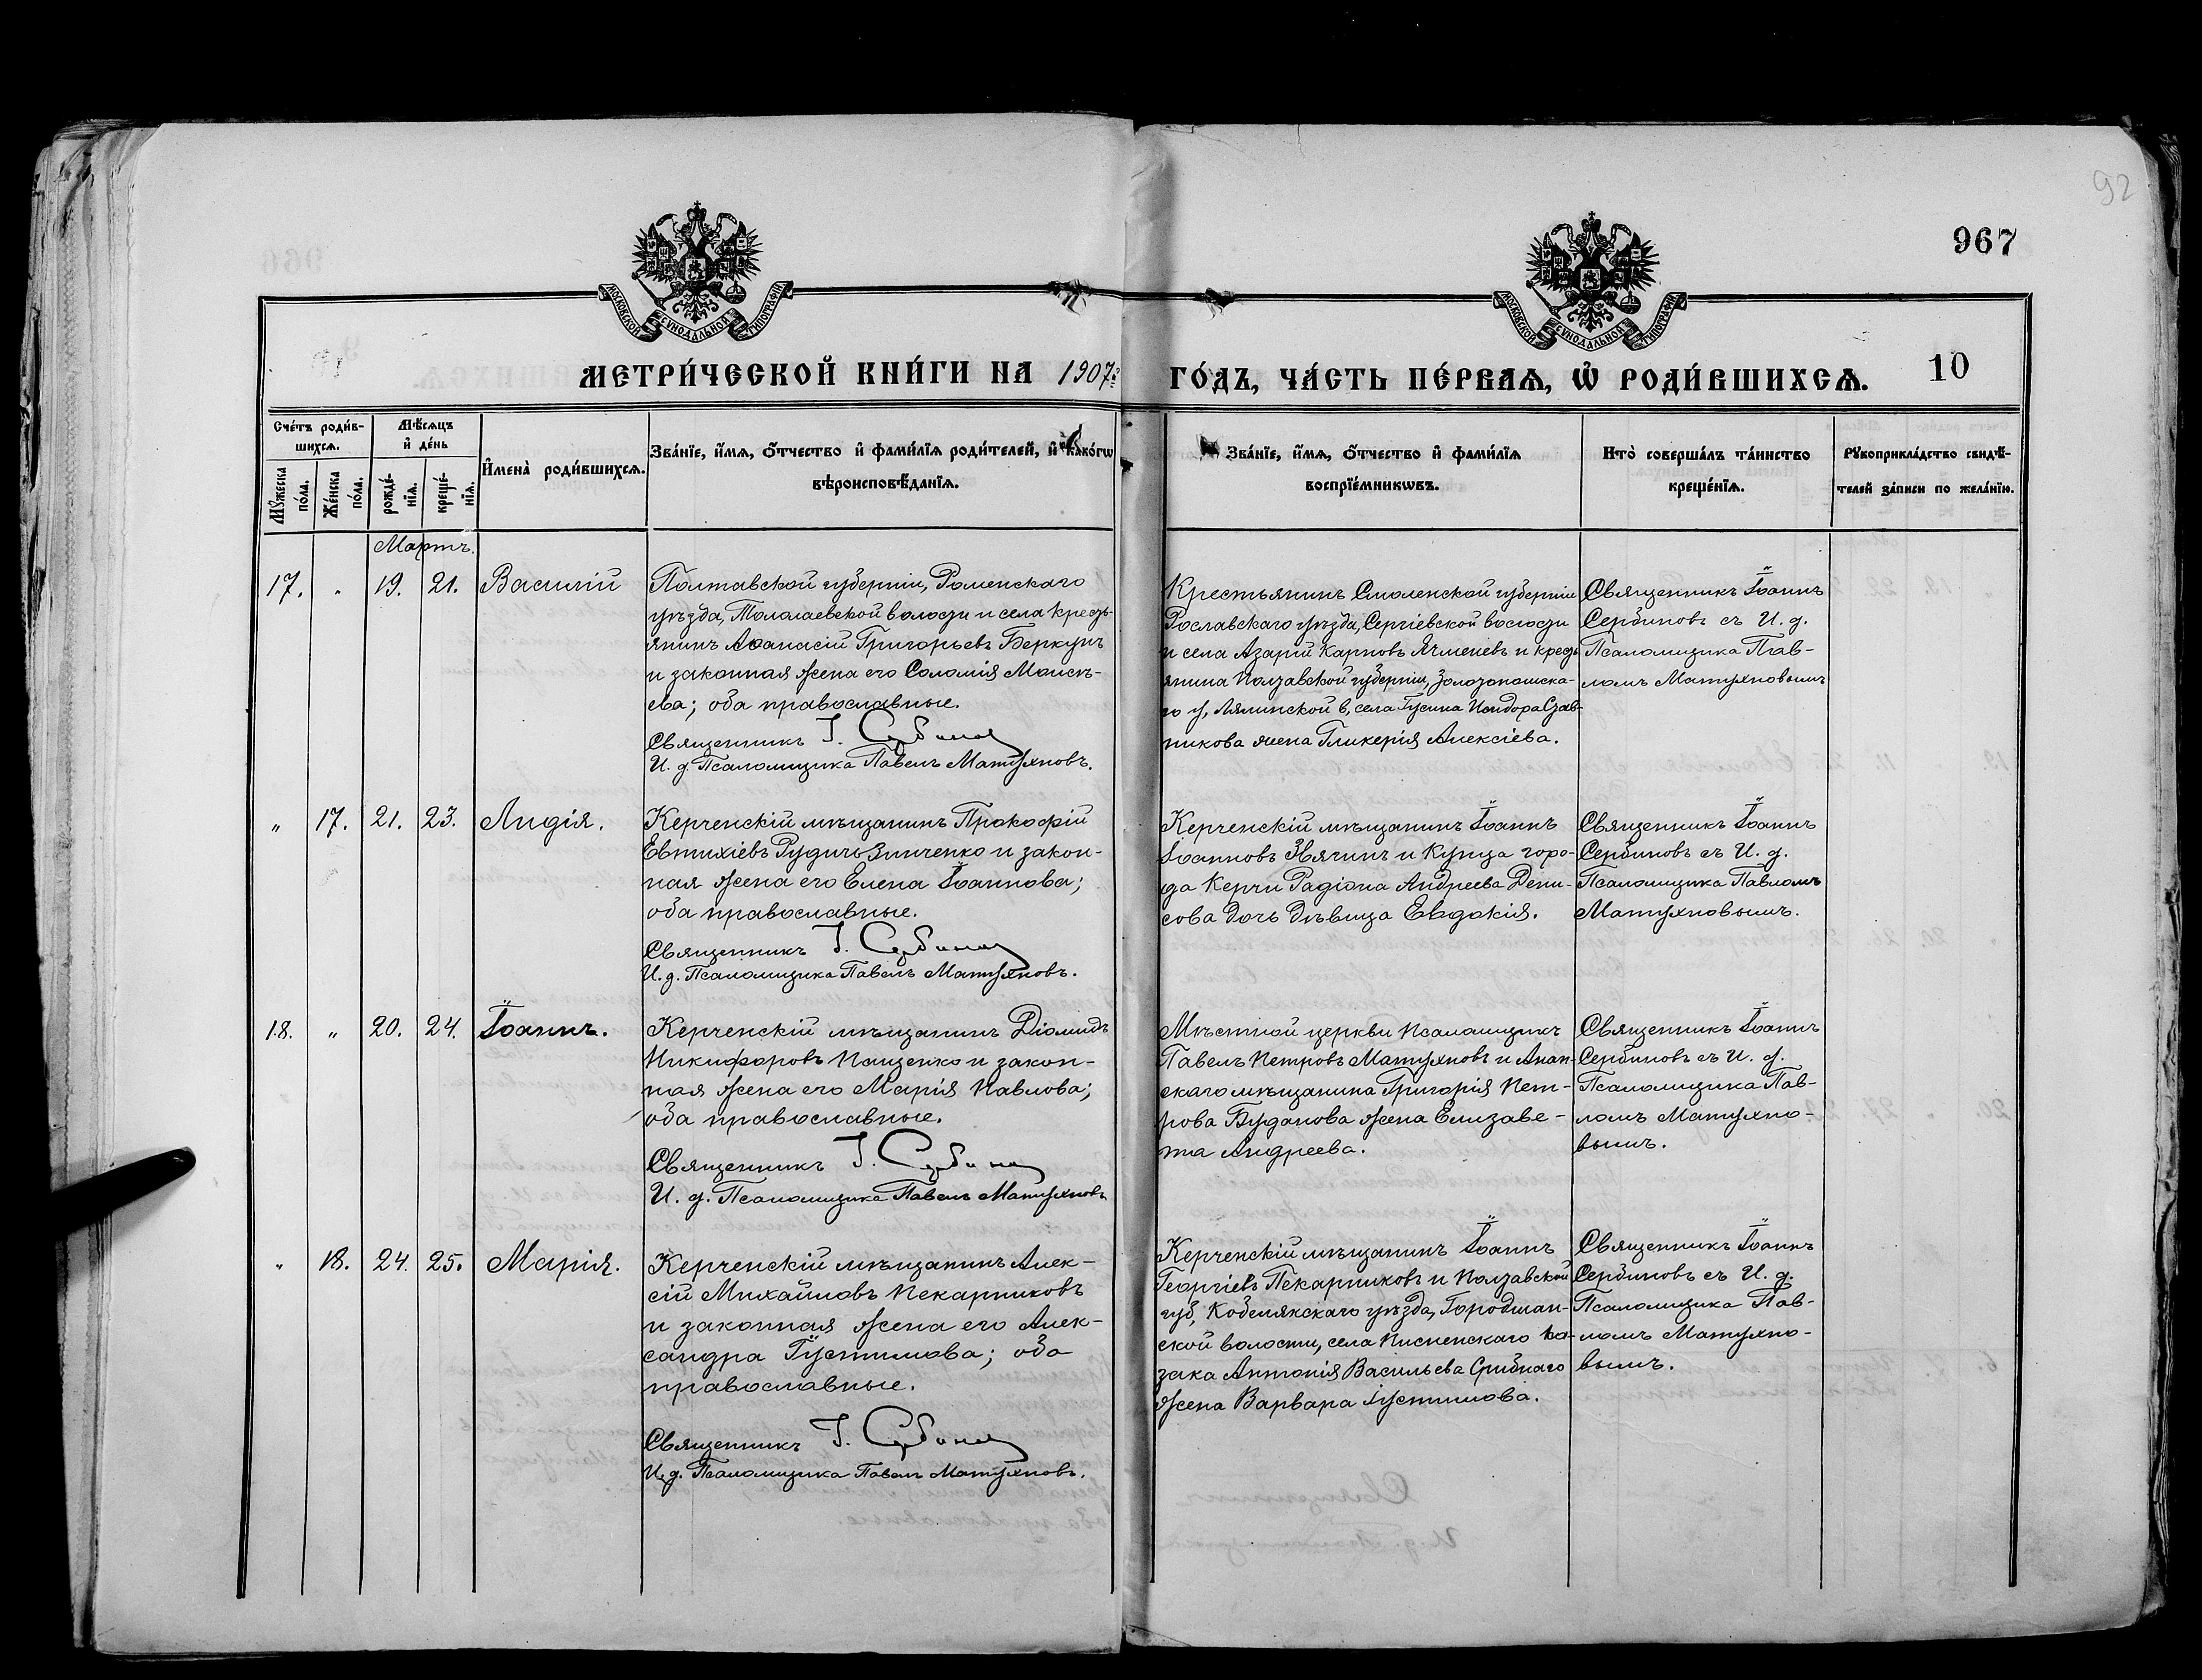 92
967
МОСКОВСКОЙ СѴНОДАЛЬНОЙ ТИПОГРАФІИ
МОСКОВСКОЙ СѴНОДАЛЬНОЙ ТИПОГРАФІИ
МЕТРИ́ЧЕСКОЙ КНИ́ГИ НА 1907 г.
ГО́ДЪ, ЧА́СТЬ ПЕ́РВАѦ, Ѡ҆ РОДИ́ВШИХСѦ. 10
Сче́тъ роди́в-
шихсѧ.
Мꙋ́жеска по́ла.
Же́нска по́ла.
Мѣ́сѧцъ
и҆ де́нь
рожде́-нїѧ.
креще́-нїѧ.
И҆мена̀ роди́вшихсѧ.
Зва́нїе, и҆́мѧ, ѻ҆́тчество и҆ фами́лїѧ роди́телей, и҆ како́гѡ
вѣроисповѣ́данїѧ.
Зва́нїе, и҆́мѧ, ѻ҆́тчество и҆ фами́лїѧ
воспрїе́мникѡвъ.
Кто̀ соверша́лъ та́инство
креще́нїѧ.
Рꙋкоприкла́дство свидѣ́-
телей за́писи по жела́нїю.
Мартъ.
17. „ 19. 21. Василій
Полтавской губерніи, Роменскаго
уѣзда, Талалаевской волости и села кресть-
янинъ Аѳанасій Григорьевъ Беркунъ
и законная жена его Соломія Моисѣ-
ева; оба православные.
Священникъ І. Сербиновъ
И. д. Псаломщика Павелъ Матухновъ.
Крестьянинъ Смоленской губерніи
Рославскаго уѣзда, Сергіевской волости
и села Азарій Карповъ Ячменевъ и кресть
янина Полтавской губерніи, Золотоношска-
го у, Лялинской в, села Гусина Исидора Став-
никова жена Гликерія Алексіева.
Священникъ Іоаннъ
Сербиновъ съ И. д.
Псаломщика Пав-
ломъ Матухновымъ
„ 17. 21. 23. Лидія.
Керченскій мѣщанинъ Прокофій
Евтихіевъ Рудичъ Зинченко и закон-
ная жена его Елена Іоаннова;
оба православные.
Священникъ І. Сербиновъ
И. д. Псаломщика Павелъ Матухновъ.
Керченскій мѣщанинъ Іоаннъ
Іоанновъ Звягинъ и купца горо-
да Керчи Радіона Андреева Дени-
сова дочь дѣвица Евдокія.
Священникъ Іоаннъ
Сербиновъ съ И. д.
Псаломщика Павломъ
Матухновымъ.
18. „ 20. 24. Іоаннъ.
Керченскій мѣщанинъ Діомидъ
Никифоровъ Пащенко и закон-
ная жена его Марія Павлова;
оба православные.
Священникъ І. Сербиновъ
И. д. Псаломщика Павелъ Матухновъ
Мѣстной церкви Псаломщикъ
Павелъ Петровъ Матухновъ и Анап-
скаго мѣщанина Григорія Пет-
рова Буданова жена Елизаве-
та Андреева.
Священникъ Іоаннъ
Сербиновъ съ И. д.
Псаломщика Пав-
ломъ Матухно-
вымъ.
„ 18. 24. 25. Марія.
Керченскій мѣщанинъ Алек-
сій Михайловъ Пекарниковъ
и законная жена его Алек-
сандра Іустинова; оба
православные.
Священникъ І. Сербиновъ
И. д. Псаломщика Павелъ Матухновъ.
Керченскій мѣщанинъ Іоаннъ
Георгіевъ Пекарниковъ и Полтавской
губ, Кобелякскаго уѣзда,
ской волости, села ка-
зака Антонія Васильева Срибнаго
жена Варвара Іустинова.
Священникъ Іоаннъ
Сербиновъ съ И. д.
Псаломщика Пав-
ломъ Матухно-
вымъ.